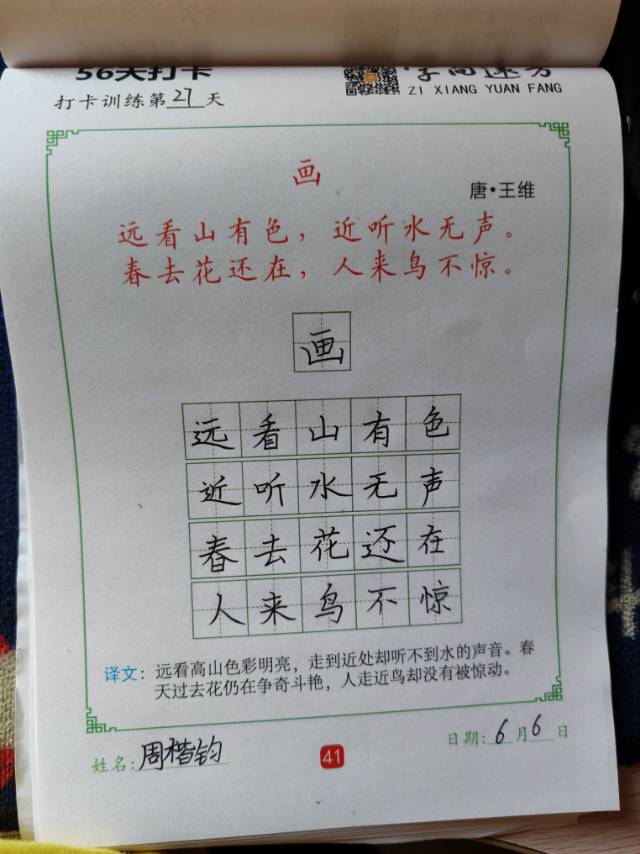 56天打卡
字高速方
ZI XIANG YUAN FANG
打卡训练第27天
画
唐·王维
远看山有色，近听水无声。
春去花还在，人来鸟不惊。
画
远看山有色
近听水无声
春去花还在
人来鸟不惊
译文：远看高山色彩明亮，走到近处却听不到水的声音。春
天过去花仍在争奇斗艳，人走近鸟却没有被惊动。
姓名：周楷钧
41
日期：6月6日